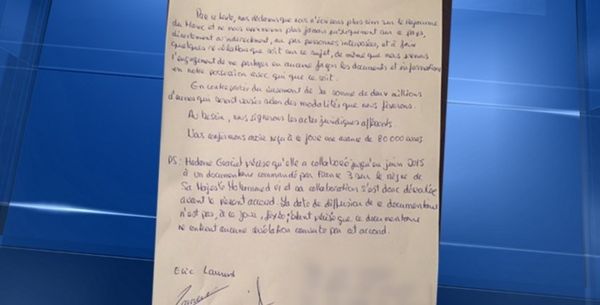 Par ce texte, nous déclarons que nous n'écrirons plus rien sur le Royaume
du Maroc et ne nous exprimerons plus jamais publiquement sur ce pays,
directement ni indirectement, ou par personnes interposées, et à faire
quelques révélations que ce soit sur ce sujet, de même que nous prenons
l'engagement de ne partager en aucune façon les documents et informations
en notre possession avec qui que ce soit.
En contrepartie du versement de la somme de deux millions
d'euros qui seront versés selon des modalités que nous fixerons.
Au besoin, nous signerons les actes juridiques afférents.
Nous confirmons avoir reçu à ce jour une avance de 80 000 euros
PS: Madame Graciet précise qu'elle a collaboré jusqu'en juin 2015
à un documentaire commandé par France 3 sur le règne de
Sa Majesté Mohammed VI et sa collaboration s'est donc déroulée
avant le présent accord. La date de diffusion de ce documentaire
n'est pas, à ce jour, fixée; étant précisé que ce documentaire
ne contient aucune révélation couverte par cet accord.
Eric Laurent